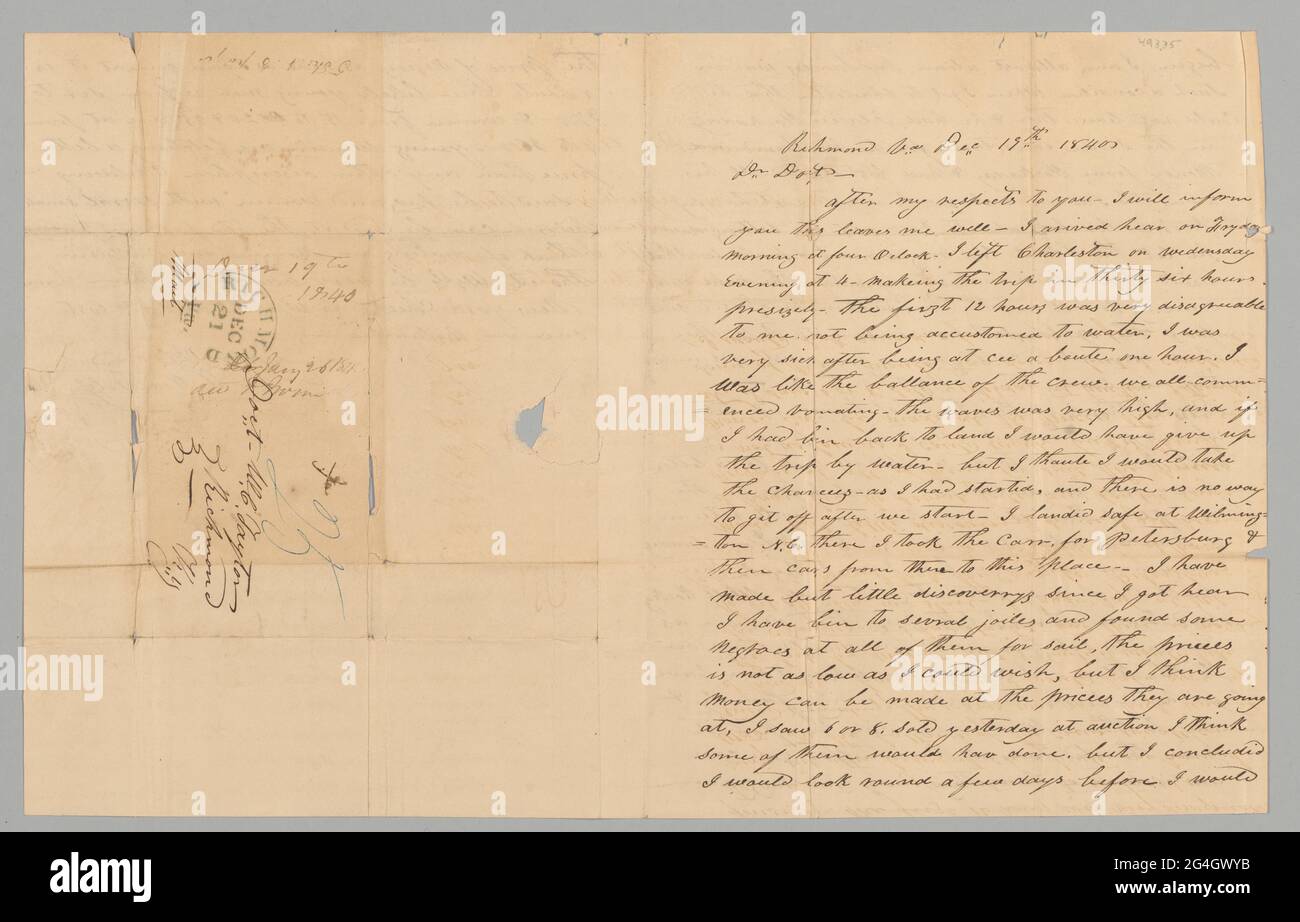 49335
Richmond Va Dec 19th 1840
Dr Doct—
after my respects to you— I will inform
you this leaves me well— I arived hear on Fryday
morning at four Oclock— I left Charleston on wedensday
Evening at 4— makeing the trip in thirty six hours
presizely— the first 12 hours was very disagreuable
to me not being accustomed to water, I was
very sick after being at cee a boute one hour. I
was like the ballance of the crew we all comm=
=enced vomating— the waves was very high, and if
I had bin back to land I would have give up
the trip by water— but I thaute I would take
the chances— as I had startid, and there is no way
to git off after we start— I landid safe at Wilming=
=ton N.C. there I took the Carr, for petersburg &
then cars from there to this place— I have
made but little discoverys since I got hear
I have bin to sevral jailes and found some
Negroes at all of them for sail, the prices
is not as low as I could wish, but I think
money can be made at the prices they are going
at, I saw 6 or 8. sold yesterday at auction I think
some of them would hav done. but I concludid
I would look round a few days before I would
Decr 19th
1840
RICHMOND
DEC
21
Doct
Richmond
City
a
alamy
alamy
Image ID: 2G4GWYB
www.alamy.com